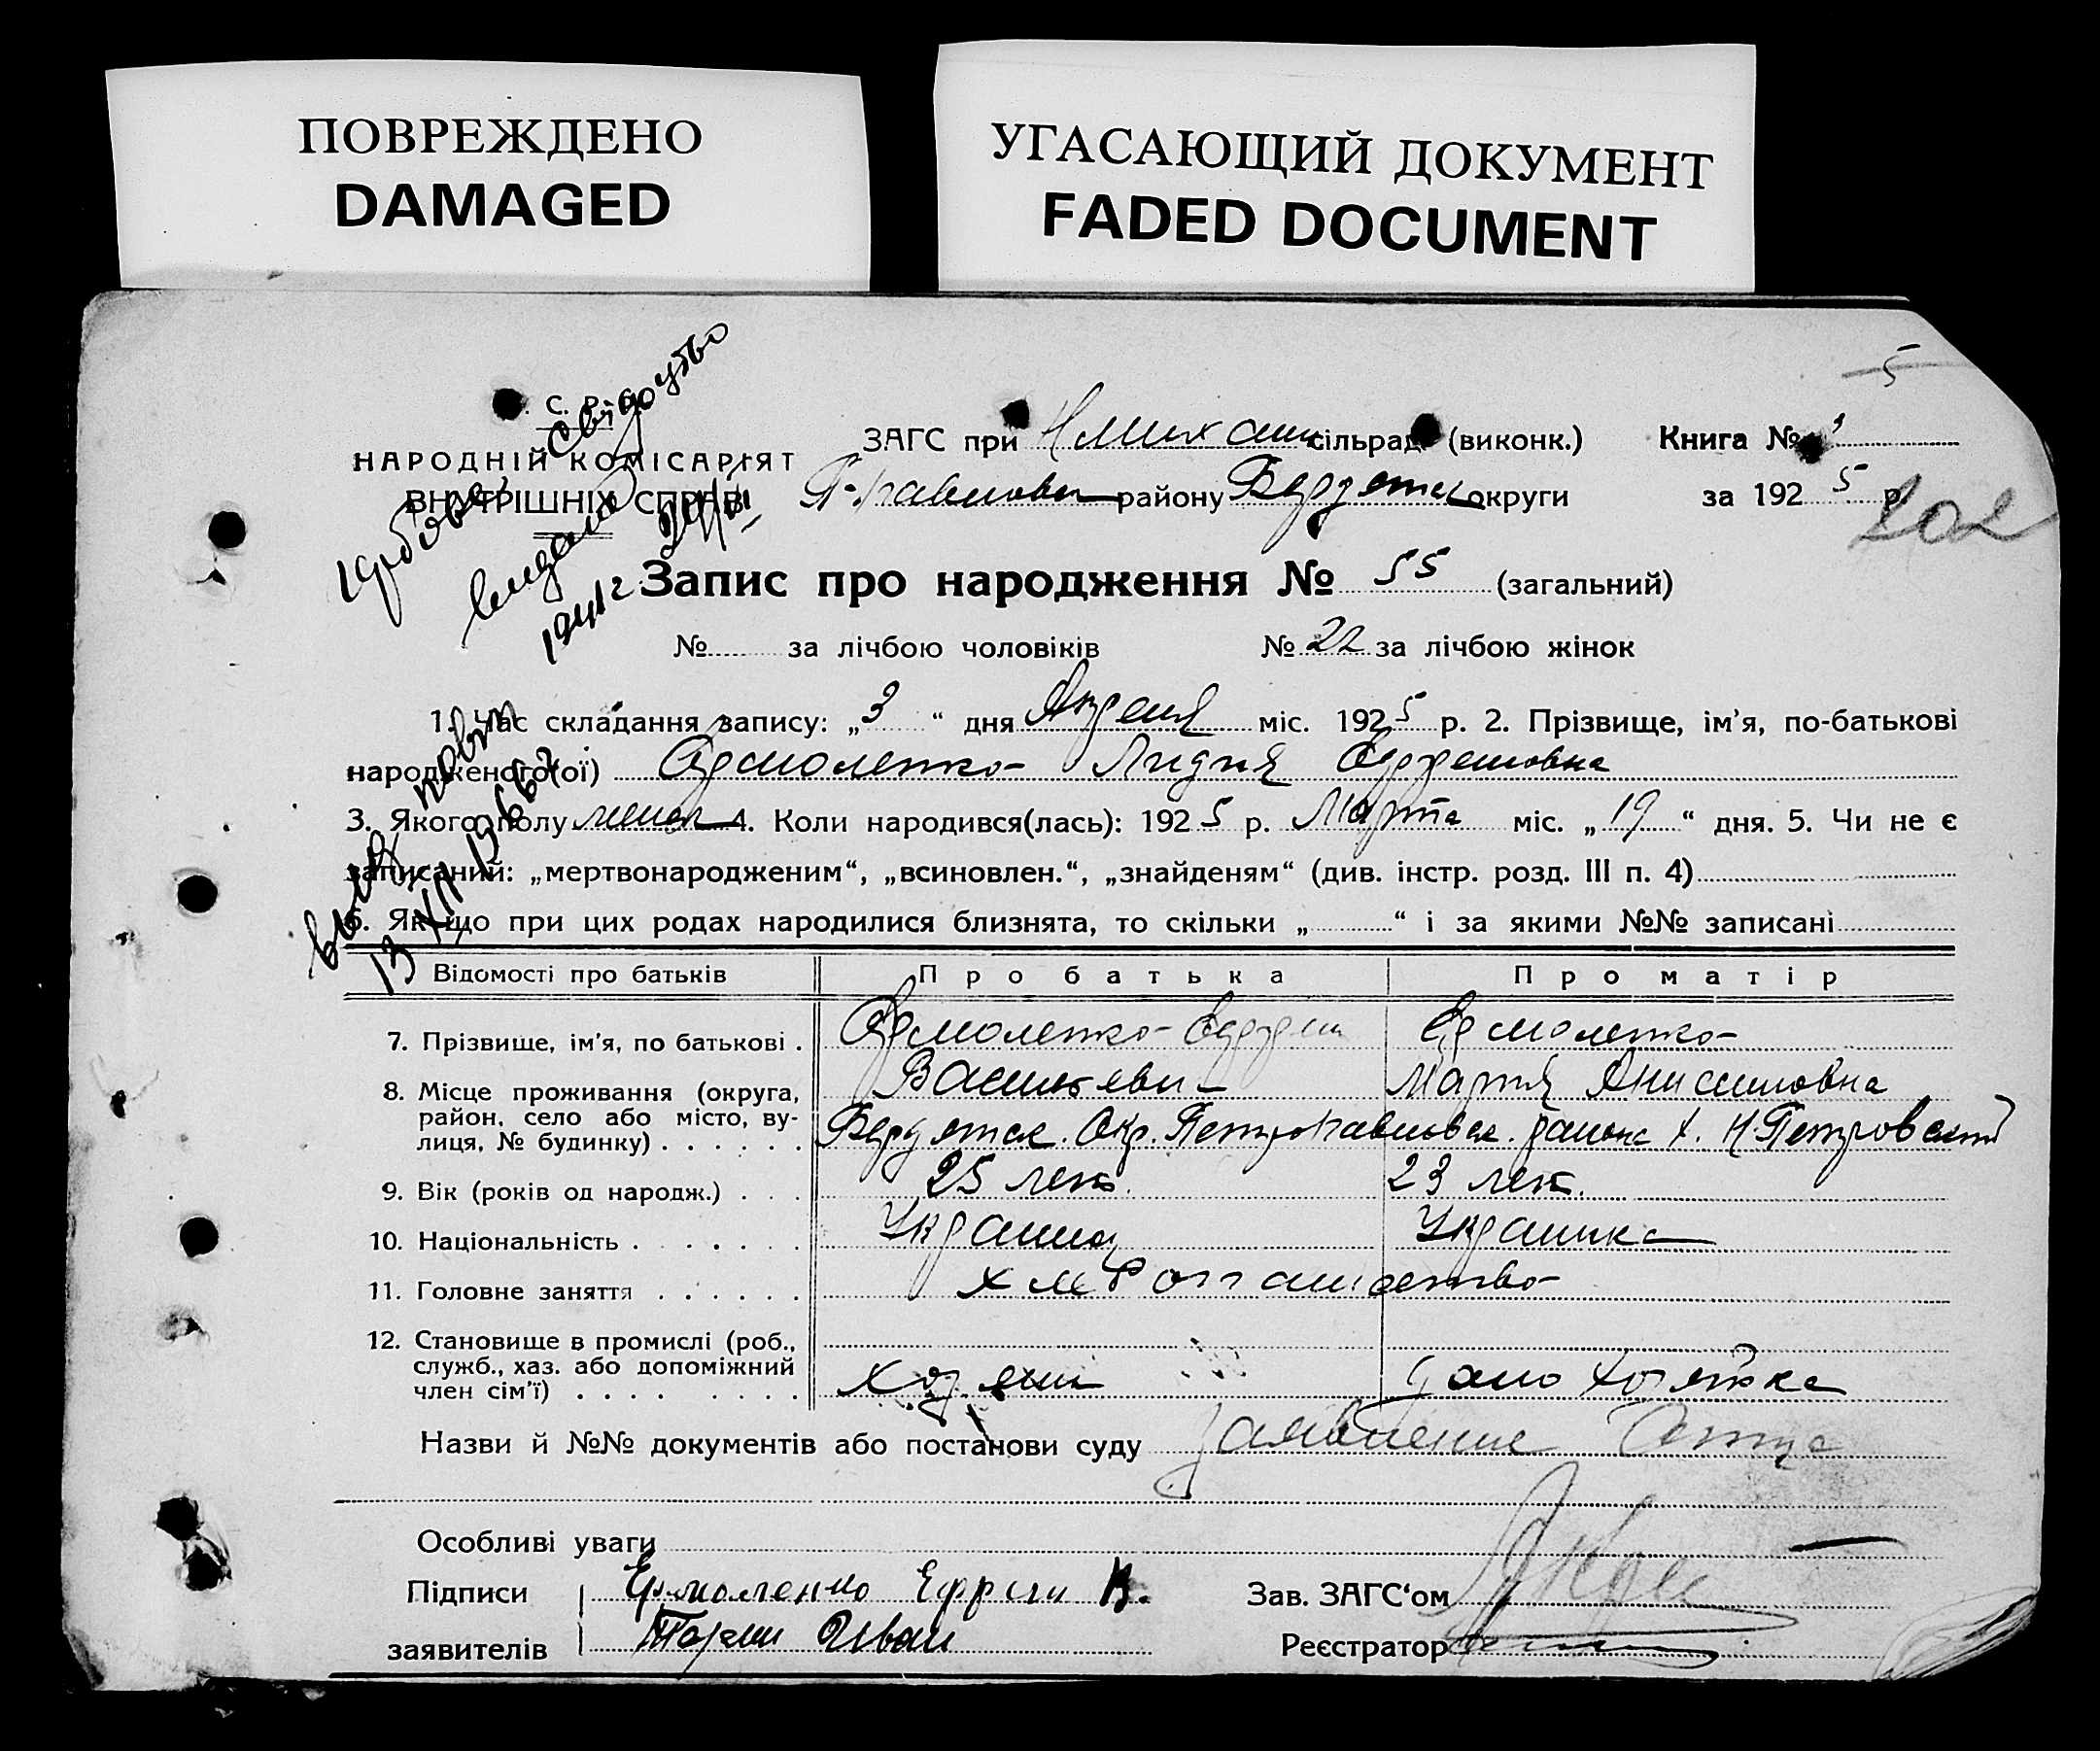 ПОВРЕЖДЕНО
DAMAGED
УГАСАЮЩИЙ ДОКУМЕНТ
FADED DOCUMENT
5
С. Р. Р.
НАРОДНІЙ КОМІСАРІЯТ
ВНУТРІШНІХ СПРАВ
свідоцтво
видано
1941 г
ЗАГС при сільраді (виконк.) Книга № 3
району Бердянск округи за 1925 р.
202
Запис про народження № 55 (загальний)
№ за лічбою чоловіків № 22 за лічбою жінок
1. Час складання запису: „3“ дня Апреля міс. 1925 р. 2. Прізвище, ім'я, по-батькові
народженого(ої) Ермоленко Лидия Ефремовна
3. Якого полу женск 4. Коли народився(лась): 1925 р. Марта міс. „19“ дня. 5. Чи не є
записаний: „мертвонародженим“, „всиновлен.“, „знайденям“ (див. інстр. розд. III п. 4)
6. Якщо при цих родах народилися близнята, то скільки „ “ і за якими №№ записані
повт
13 XII 1966 г
Відомості про батьків Про батька Про матір
7. Прізвище, ім'я, по батькові . Ермоленко Ефрем Ермоленко
Васильеви Мария Анисимовна
8. Місце проживання (округа,
район, село або місто, ву-
лиця, № будинку) . . . . . . Бердянск. Окр. Петропавловск. района х. Н. Петровский
9. Вік (років од народж.) . . . 25 лет. 23 лет.
10. Національність . . . . . . Украинец Украинка
11. Головне заняття . . . . . . хлебопашество
12. Становище в промислі (роб.,
служб., хаз. або допоміжний
член сім'ї) . . . . . . . . хозяин домохозяйка
Назви й №№ документів або постанови суду заявление Отца
Особливі уваги —
Підписи Ермоленко Ефрем В. Зав. ЗАГС'ом
заявителів Иван Реєстратор